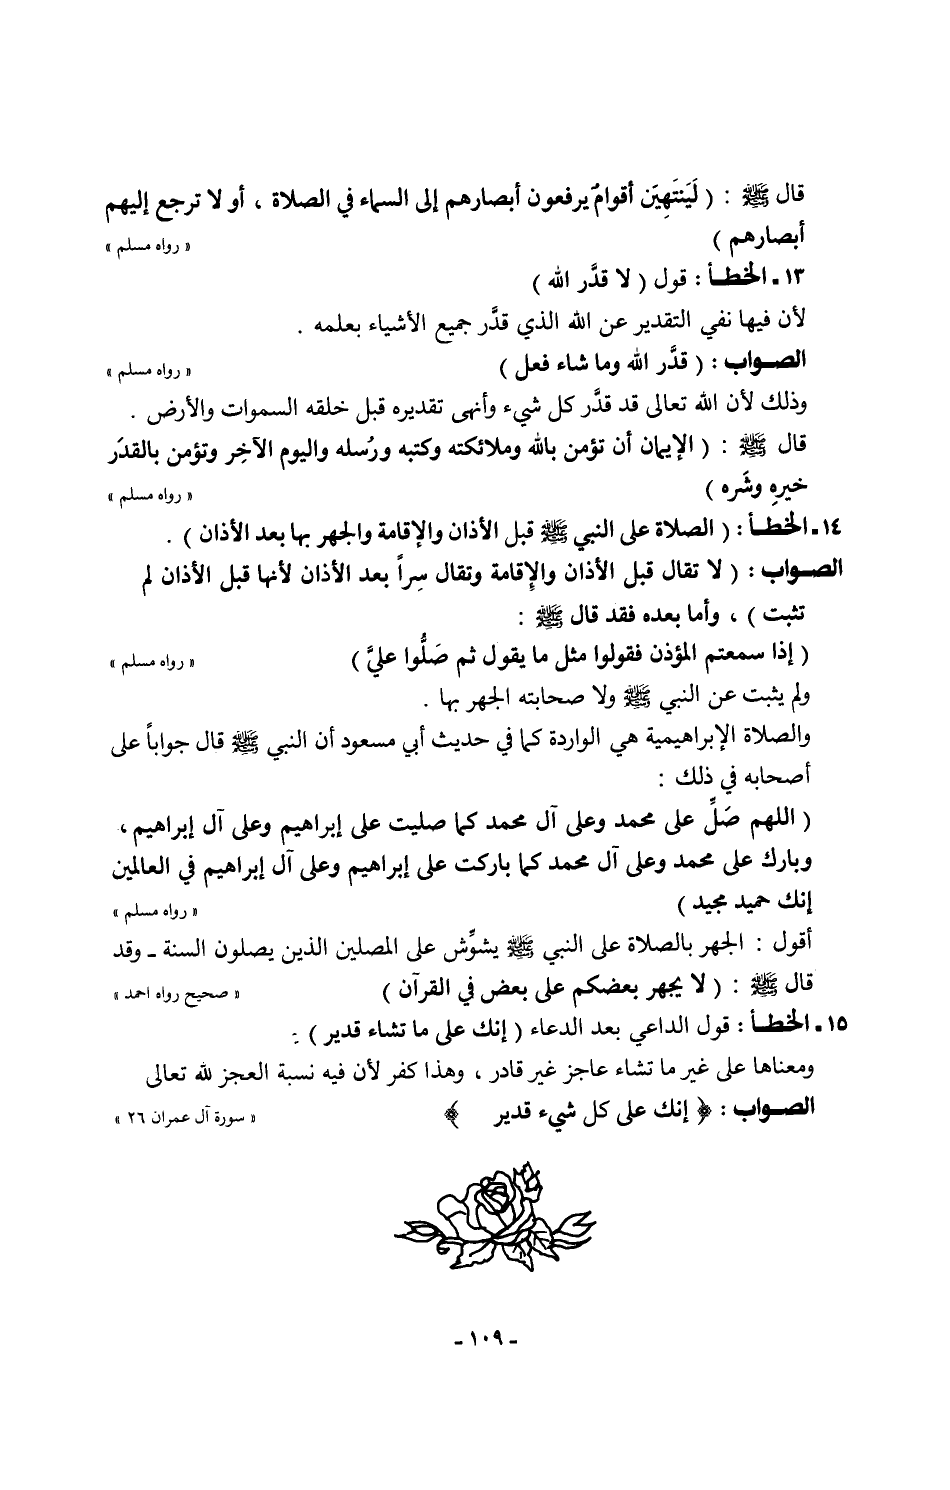 قال ﷺ : ( لَيَنتَهِيَن أقوامٌ يرفعون أبصارهم إلى السماء في الصلاة ، أو لا ترجع إليهم
أبصارهم ) « رواه مسلم »
١٣ ـ الخطـأ : قول ( لا قدَّر الله )
لأن فيها نفي التقدير عن الله الذي قدَّر جميع الأشياء بعلمه .
الصـواب : ( قدَّر الله وما شاء فعل ) « رواه مسلم »
وذلك لأن الله تعالى قد قدَّر كل شيء وأنهى تقديره قبل خلقه السموات والأرض .
قال ﷺ : ( الإيمان أن تؤمن بالله وملائكته وكتبه ورُسله واليوم الآخِر وتؤمن بالقدَر
خيرِه وشَره ) « رواه مسلم »
١٤ ـ الخطـأ : ( الصلاة على النبي ﷺ قبل الأذان والإقامة والجهر بها بعد الأذان ) .
الصـواب : ( لا تقال قبل الأذان والإقامة وتقال سِراً بعد الأذان لأنها قبل الأذان لم
تثبت ) ، وأما بعده فقد قال ﷺ :
( إذا سمعتم المؤذن فقولوا مثل ما يقول ثم صَلُّوا عليَّ ) « رواه مسلم »
ولم يثبت عن النبي ﷺ ولا صحابته الجهر بها .
والصلاة الإبراهيمية هي الواردة كما في حديث أبي مسعود أن النبي ﷺ قال جواباً على
أصحابه في ذلك :
( اللهم صَلِّ على محمد وعلى آل محمد كما صليت على إبراهيم وعلى آل إبراهيم ،
وبارك على محمد وعلى آل محمد كما باركت على إبراهيم وعلى آل إبراهيم في العالمين
إنك حميد مجيد ) « رواه مسلم »
أقول : الجهر بالصلاة على النبي ﷺ يشوِّش على المصلين الذين يصلون السنة ـ وقد
قال ﷺ : ( لا يجهر بعضكم على بعض في القرآن ) « صحيح رواه احمد »
١٥ ـ الخطـأ : قول الداعي بعد الدعاء ( إنك على ما تشاء قدير ) :
ومعناها على غير ما تشاء عاجز غير قادر ، وهذا كفر لأن فيه نسبة العجز لله تعالى
الصـواب : ﴿ إنك على كل شيء قدير ﴾ « سورة آل عمران ٢٦ »
ـ ١٠٩ ـ